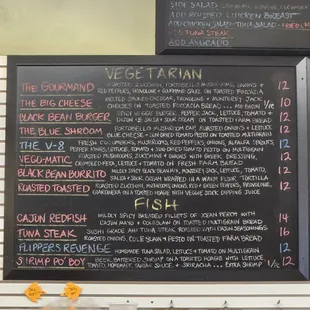 SIDE SALAD
ADD ROASTED CHICKEN BREAST
TUNA SALAD
TUNA STEAK
ADD AVOCADO
VEGETARIAN
THE GOURMAND ROASTED ZUCCHINI, PORTOBELLO MUSHROOMS, ONIONS + 12
RED PEPPERS, PROVOLONE + ON TOASTED FOCACCIA
THE BIG CHEESE MELTED SMOKED CHEDDAR, PROVOLONE + MONTEREY JACK 10
CHEESES ON TOASTED FOCACCIA BREAD ... ADD BACON 1/10
BLACK BEAN BURGER SPICY VEGGIE BURGER, PEPPER JACK, LETTUCE, TOMATO + 12
CAJUN SOUR CREAM ON TOASTED FARM BREAD
THE BLUE SHROOM PORTOBELLO MUSHROOM CAP, ROASTED ONIONS + LETTUCE 12
BLUE CHEESE + SUN DRIED TOMATO PESTO ON TOASTED MULTIGRAIN
THE V-8 FRESH CUCUMBERS, MUSHROOMS, RED PEPPERS, ONIONS, ALFALFA SPROUTS, 12
PEPPER JACK, LETTUCE, TOMATO + SUN DRIED TOMATO PESTO ON MULTIGRAIN
VEGG-MATIC FRESH MUSHROOMS, ZUCCHINI + ONIONS WITH GREEK DRESSING, 12
CRUMBLED FETA, LETTUCE + TOMATO ON FRESH FARM BREAD
BLACK BEAN BURRITO MILDLY SPICY BLACK BEANS, MONTEREY JACK, LETTUCE, TOMATO, 12
SALSA + SOUR CREAM WRAPPED IN A WARM FLOUR TORTILLA
ROASTED TOASTED ROASTED ZUCCHINI, MUSHROOMS, ONIONS, RED + GREEN PEPPERS, PROVOLONE, 12
GIARDINIERA ON TOASTED HOAGIE WITH VEGGIE STOCK DIPPING JUICE
FISH
CAJUN REDFISH MILDLY SPICY BREADED FILLETS OF OCEAN PERCH WITH 14
CAJUN MAYO + COLESLAW ON TOASTED MULTIGRAIN BREAD
TUNA STEAK SUSHI GRADE AHI TUNA STEAK ROASTED WITH CAJUN SEASONINGS 16
ROASTED ONIONS, COLE SLAW + PESTO ON TOASTED FARM BREAD
FLIPPER'S REVENGE HOMEMADE TUNA SALAD, LETTUCE + TOMATO ON MULTIGRAIN 12
SHRIMP PO' BOY BEER BATTERED SHRIMP ON A TOASTED HOAGIE WITH LETTUCE, 12
TOMATO, HOMEMADE TARTAR SAUCE + SRIRACHA ... EXTRA SHRIMP